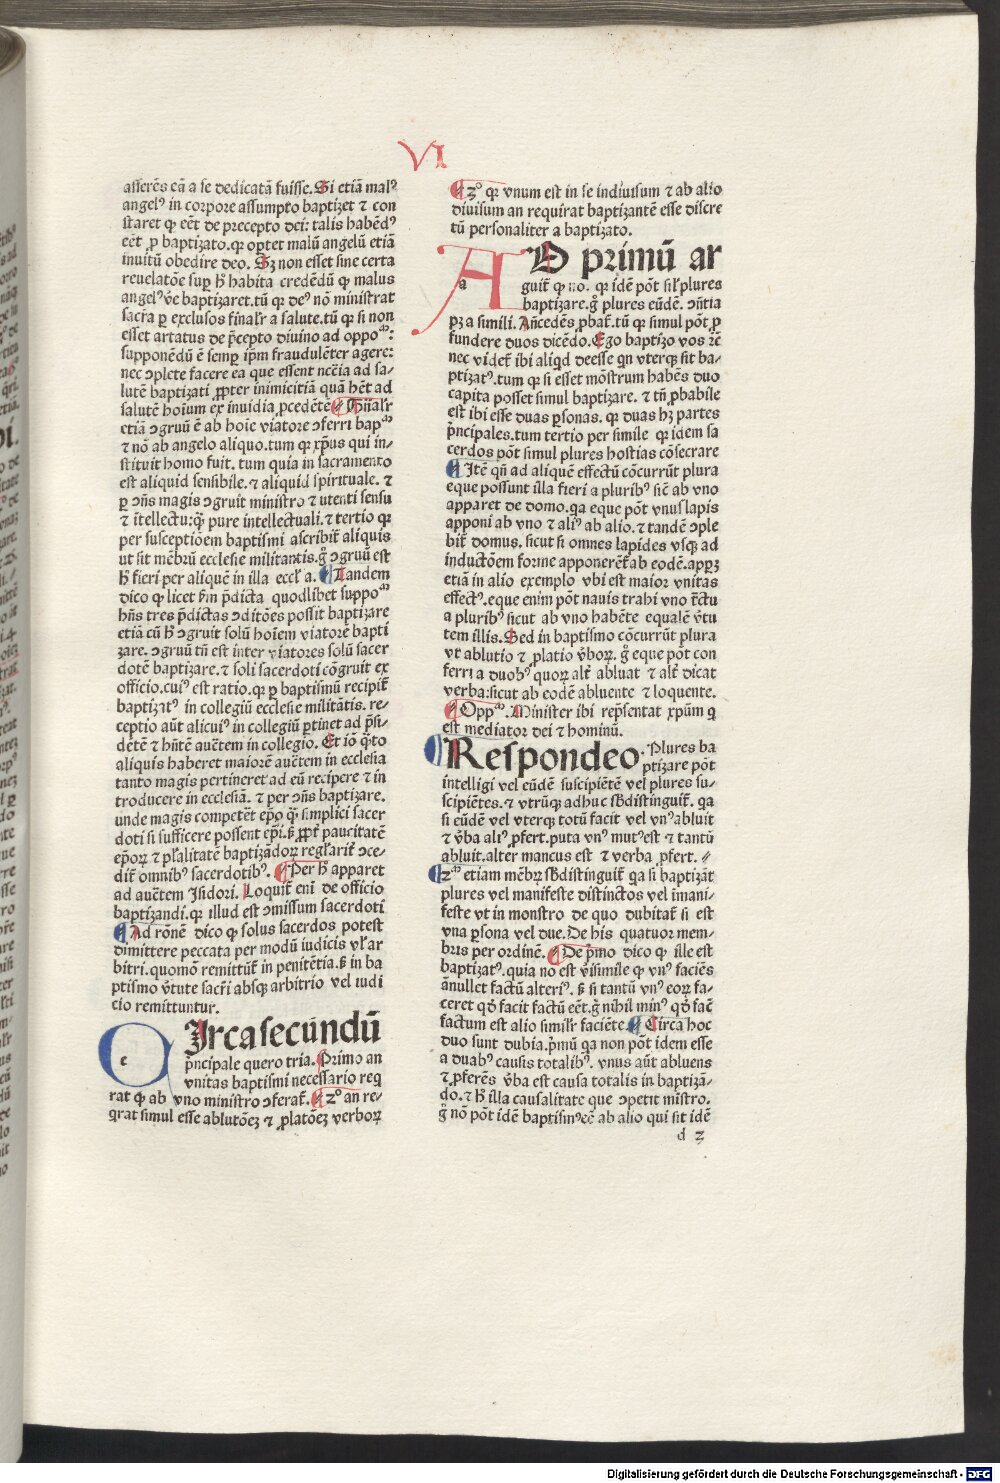 VI
asserẽs eã a se dedicatã fuisse. Si etiã malꝰ
angelꝰ in corpore assumpto baptizet ⁊ con
staret ꝙ eẽt de precepto dei: talis habẽdꝰ
eẽt ꝓ baptizato. qꝛ oꝑtet malũ angelũ etiã
inuitũ obedire deo. Sꝫ non esset sine certa
reuelatõe suꝑ hͦ habita credẽdũ ꝙ malus
angelꝰ v̑e baptizaret. tũ qꝛ deꝰ nõ ministrat
sacr̃a ꝑ exclusos finalr̃ a salute. tũ qꝛ si non
esset artatus de p̃cepto diuino ad oppoᵐ:
supponẽdũ ẽ semꝑ ip̃m fraudulẽter agere:
nec ↄplete facere ea que essent nc̃cia ad sa⸗
lutẽ baptizati ꝓpter inimicitiã quã hẽt ad
salutẽ hoĩum ex inuidia ꝓcedẽte. Fĩnalr̃
etiã ↄgruũ ẽ ab hoĩe viatore ↄferri bapᵐ
⁊ nõ ab angelo aliquo. tum qꝛ xp̃us qui in⸗
stituit homo fuit. tum quia in sacramento
est aliquid sensibile. ⁊ aliquid spirituale. ⁊
ꝑ ↄñs magis ↄgruit ministro ⁊ utenti sensu
⁊ ĩtellectu: q̃ pure intellectuali. ⁊ tertio qꝛ
per susceptiõem baptismi ascribit̃ aliquis
ut sit mẽbrũ ecclesie militantis. gͦ ↄgruũ est
hͦ fieri per aliquẽ in illa eccl̃ia. Tandem
dico ꝙ licet bñ in p̃dicta quodlibet suppoᵐ
hñs tres p̃dictas ↄditões possit baptizare
etiã cũ hͦ ↄgruit solũ hoĩem viatorẽ bapti
zare. ↄgruũ tñ est inter viatores solũ sacer
dotẽ baptizare. ⁊ soli sacerdoti cõgruit ex
officio. cuiꝰ est ratio. qꝛ ꝑ baptismũ recipit̃
baptizatꝰ in collegiũ ecclesie militãtis. re⸗
ceptio aũt alicuiꝰ in collegiũ ꝑtinet ad p̃si⸗
dẽtẽ ⁊ hñtẽ auctẽm in collegio. Et iõ q̃to
aliquis haberet maiorẽ auctẽm in ecclesia
tanto magis pertineret ad eũ recipere ⁊ in
troducere in ecclesiã. ⁊ per ↄñs baptizare.
unde magis competẽt ep̃o q̃ simplici sacer
doti si sufficere possent ep̃i. sꝫ ꝓpt̃ paucitatẽ
ep̃oꝝ ⁊ pl̃alitatẽ baptizãdoꝝ regl̃arit̃ ↄce⸗
dit̃ omnibꝰ sacerdotibꝰ. Per hͦ apparet
ad auctẽm Isidori. Loquit̃ eni de officio
baptizandi. qꝛ illud est ↄmissum sacerdoti
Ad rõnẽ dico ꝙ solus sacerdos potest
dimittere peccata per modũ iudicis vl̃ ar
bitri. quomõ remittũt̃ in penitẽtia. sꝫ in ba
ptismo v̑tute sacr̃i absqꝫ arbitrio vel iudi
cio remittuntur.
CIrca secũndũ
c
p̃ncipale quero tria. Primo an
vnitas baptismi necessario req
rat ꝙ ab vno ministro ↄferat̃. 2ͦ an re⸗
q̃rat simul esse ablutõeꝫ ⁊ ꝓlatõeꝫ verboꝝ
2ͦ qꝛ vnum est in se indiuisum ⁊ ab alio
diuisum an requirat baptizantẽ esse discre
tũ personaliter a baptizato.
AD primũ ar
a
guit̃ ꝙ no. qꝛ idẽ põt sil̃r plures
baptizare. gͦ plures eũdẽ. ↄñtia
pꝫ a simili. Añcedẽs ꝓbat̃. tũ qꝛ simul põt ꝓ
fundere duos dicẽdo. Ego baptizo vos ⁊c̃
nec videt̃ ibi aliqd deesse qn vterqꝫ sit ba⸗
ptizatꝰ. tum qꝛ si esset mõstrum habẽs duo
capita posset simul baptizare. ⁊ tñ ꝓbabile
est ibi esse duas ꝑsonas. qꝛ duas hꝫ partes
p̃ncipales. tum tertio per simile qꝛ idem sa
cerdos põt simul plures hostias cõsecrare
Itẽ qñ ad aliquẽ effectũ cõcurrũt plura
eque possunt illa fieri a pluribꝰ sic̃ ab vno
apparet de domo. qa eque põt vnus lapis
apponi ab vno ⁊ aliꝰ ab alio. ⁊ tandẽ ↄple
bit̃ domus. sicut si omnes lapides vsqꝫ ad
inductõem forme apponerẽt̃ ab eodẽ. apꝑꝫ
etiã in alio exemplo vbi est maior vnitas
effectꝰ. eque enim põt nauis trahi vno tr̃ctu
a pluribꝰ sicut ab vno habẽte equalẽ v̑tu
tem illis. Sed in baptismo cõcurrũt plura
vt ablutio ⁊ ꝓlatio v̑boꝝ. gͦ eque põt con
ferri a duobꝰ quoꝝ alt̃ abluat ⁊ alt̃ dicat
verba: sicut ab eodẽ abluente ⁊ loquente.
Oppᵐ. Minister ibi rep̃sentat xp̃um q
est mediator dei ⁊ hominũ.
Respondeo. Plures ba
ptizare põt
intelligi vel eũdẽ suscipiẽtẽ vel plures su⸗
scipiẽtes. ⁊ vtrũqꝫ adhuc sb̃distinguit̃. qa
si eũdẽ vel vterqꝫ totũ facit vel vnꝰ abluit
⁊ v̑ba aliꝰ ꝓfert. puta vnꝰ mutꝰ est ⁊ tantũ
abluit. alter mancus est ⁊ verba ꝓfert.
2ᵐ etiam mẽbꝝ sb̃distinguit̃ qa si baptizãt
plures vel manifeste distinctos vel ĩmani⸗
feste vt in monstro de quo dubitat̃ si est
vna ꝑsona vel due. De his quatuor mem⸗
bris per ordinẽ. De p̃mo dico ꝙ ille est
baptizatꝰ. quia no est v̑isimile ꝙ vnꝰ faciẽs
ãnullet factũ alteriꝰ. sꝫ si tantũ vnꝰ eoꝝ fa⸗
ceret qd̃ facit factũ eẽt. gͦ nihil minꝰ qd̃ fac̃
factum est alio simil̃r faciẽte. Circa hoc
duo sunt dubia. p̃mũ qa non põt idem esse
a duabꝰ causis totalibꝰ. vnus aũt abluens
⁊ ꝓferẽs v̑ba est causa totalis in baptizã⸗
do. ⁊ hͦ illa causalitate que ↄpetit mĩstro.
gͦ nõ põt idẽ baptismꝰ eẽ ab alio qui sit idẽ
d 2
Digitalisierung gefördert durch die Deutsche Forschungsgemeinschaft - DFG